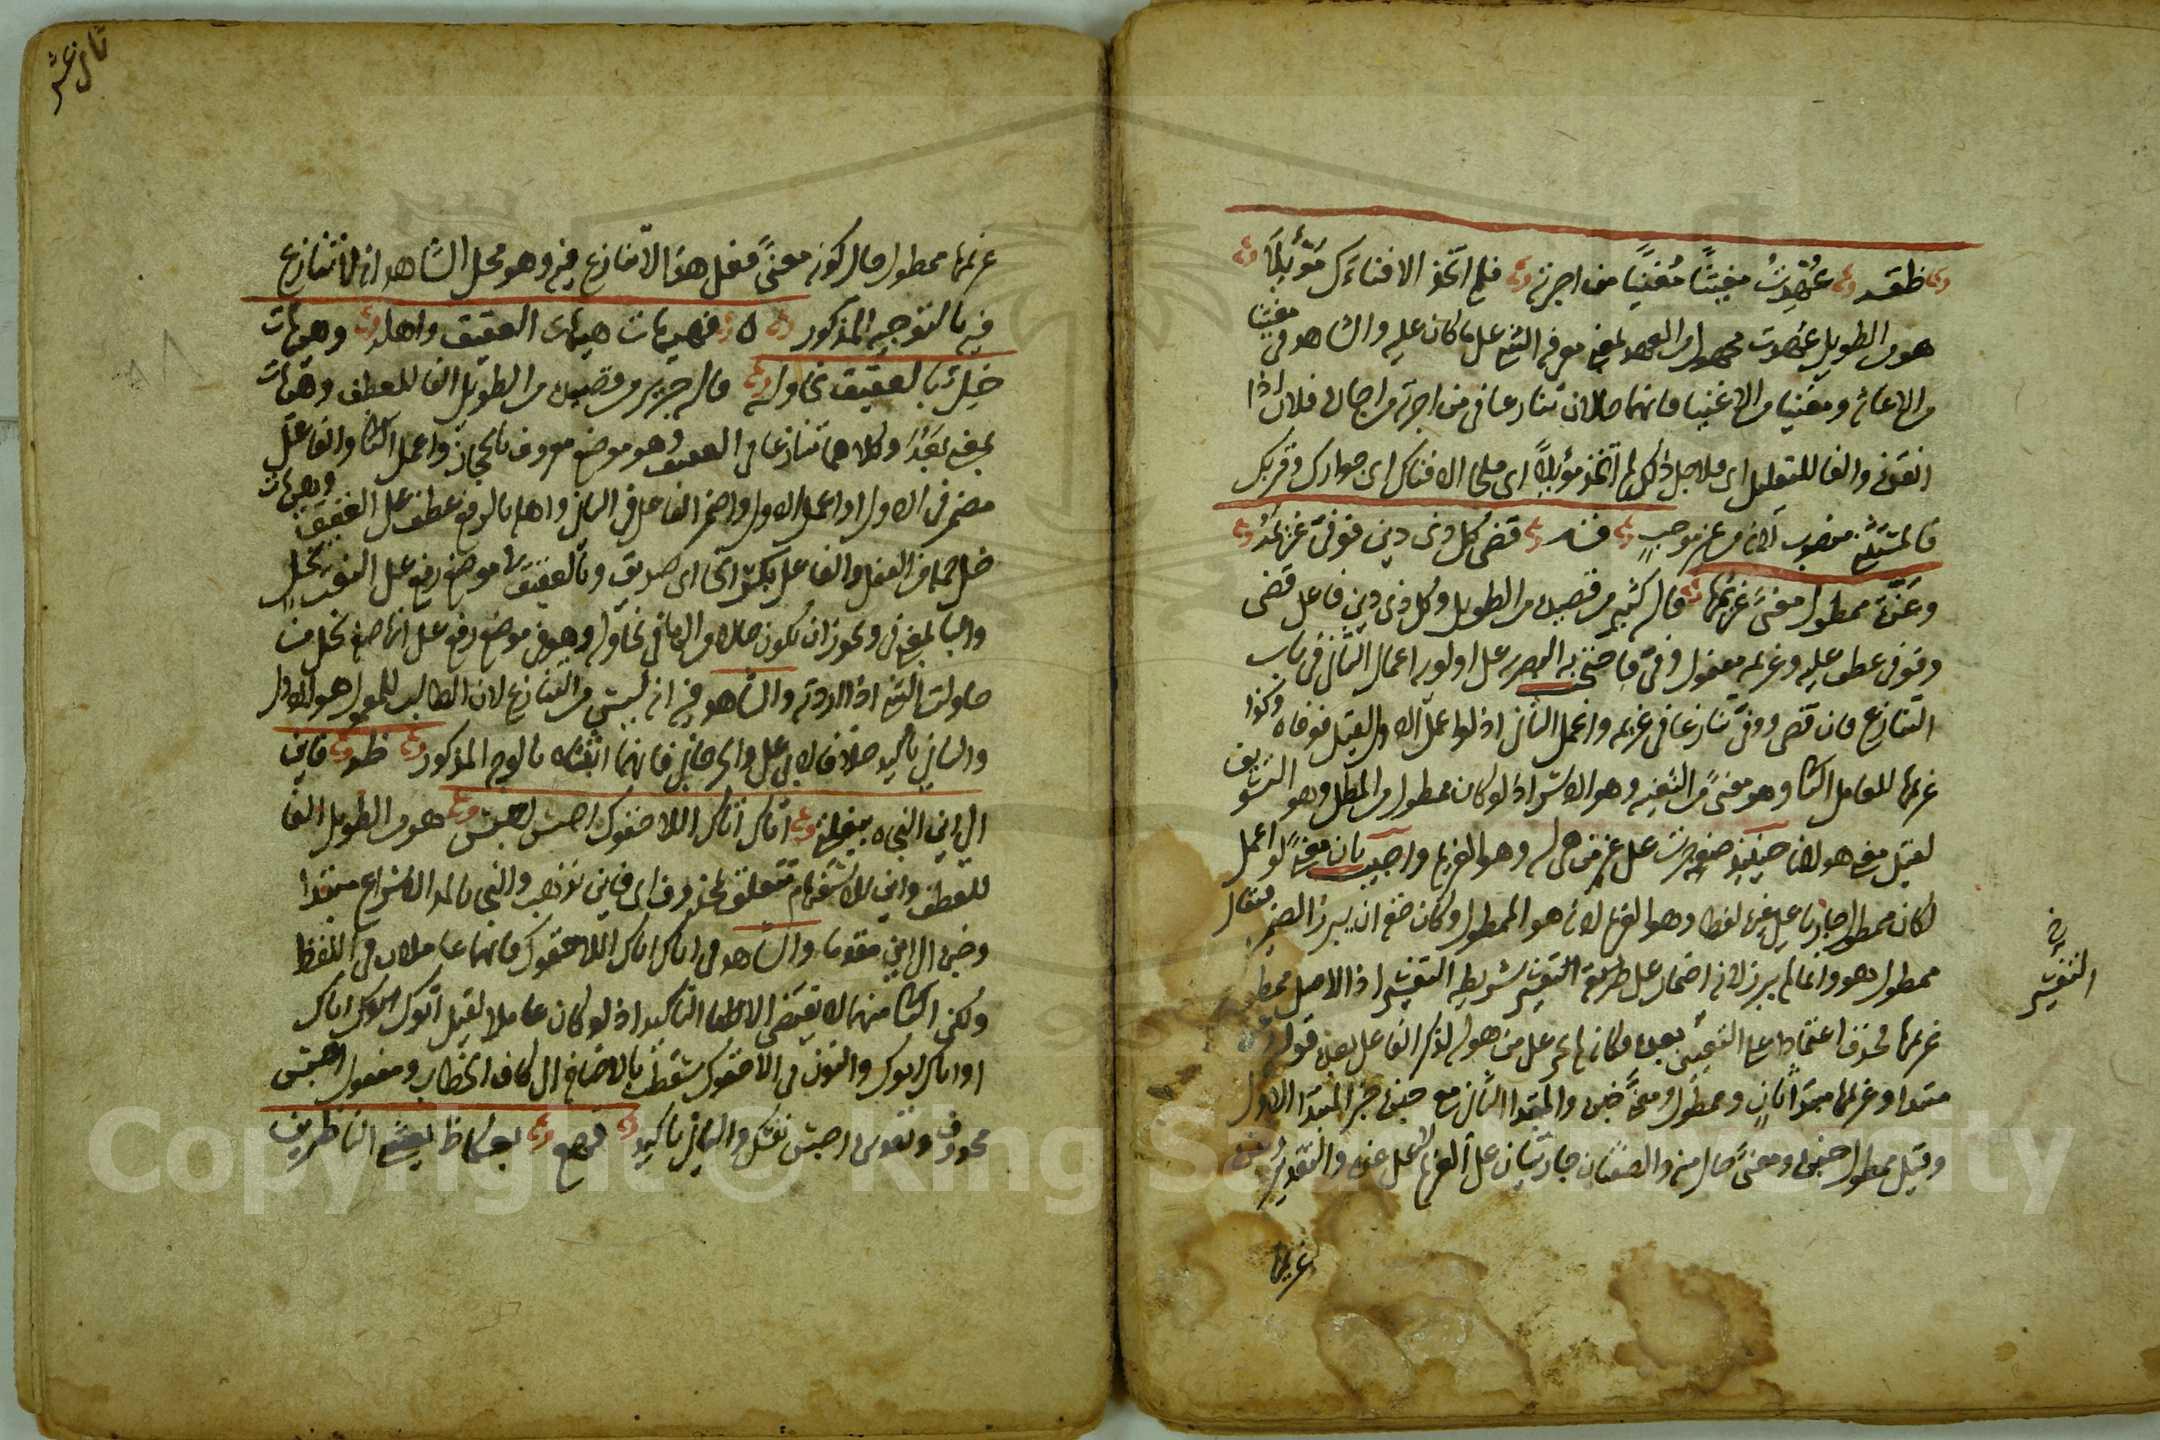 ظقه عُهِدتَ مغيثًا مُغنيًا من اجرته فلم اتخذ الا فناءك موئلًا
هو من الطويل عهدت مجهول من العهد بمعنى معرفة الشئ على ما كان عليه والشاهد فى مغيثا
من الاغاثة ومغنيا من الاغنيا فانهما حالان تنازعا فى من اجرته من اجار فلان اذا
انقذه والفا للتعليل اى فلاجل ذلك لم اتخذ موئلًا اى ملجا الا فناك اى جوارك وقربك
فالمستثنى منصوب لانه من غير موجب قشه قضى كل ذى دين فوفى غريمه
وعزة ممطول معنى غريمها قاله كثير من قصيدة من الطويل وكل ذى دين فاعل قضى
وفوفى عطف عليه وغريمه مفعول وفى ما احتج به البصرية على اولوية اعمال الثانى فى باب
التنازع فان قضى ووفى تنازعا فى غريمه واعمل الثانى اذ لو اعمل الاول لقيل فوفاه وكذا
غريمها للعامل الثانى وهو معنى من التعنية وهو الاسر اذ لو كان ممطول من المطل وهو التسويف
لقيل معنى هو لانها حينئذ صفة جرت على غير من هى له وهو الغريم واجيب بان معنى لو اعمل
لكان ممطول جاريا على غيرها لفظا وهو الغريم لانه هو الممطول وكان حقه ان يبرز الضمير فيقال
ممطول هو وانما لم يبرز لانه اضمار على طريقة التفسير لشريطة التفسير اذ الاصل ممطول
غريمها فحذف اعتمادا على التفسير بعده فكانه لم يجر على من هو له لذكر الفاعل بعده قوله عزة
مبتدا وغريمها مبتدا ثان وممطول ومعنى خبره والمبتدا الثانى مع خبره خبر المبتدا الاول
وقيل ممطول خبره ومعنى حال منه والصفتان جاريتان على الغريم لا على عزة والتقدير عزة
غريمها
خ
التفسير
ثانى عشر
غريمها ممطول حال كونه معنى فعلى هذا لا تنازع فيه وهو محل الشاهد انه لا تنازع
فيه بالتوجيه المذكور ه فهيهات هيهات العقيق واهله وهيهات
خل بالعقيق نحاوله قاله جرير من قصيدة من الطويل الفا للعطف وهيهات
بمعنى بعد وكلاهما تنازعا فى العقيق وهو موضع معروف بالحجاز واعمل الثانى والفاعل
مضمر فى الاول او اعمل الاول واضمر الفاعل فى الثانى واهله بالرفع عطف على العقيق وهيهات
خل جملة من الفعل والفاعل بكسر الخا اى صديق وبالعقيق فى موضع رفع على النعت لخل
والبا بمعنى فى ويجوز ان يكون حالا من الها فى نحاوله وهو فى موضع رفع على انها صفة لخل من
حاولت الشئ اذا اردته والشاهد فيه انه ليس من التنازع لان الطالب للمعمول هو الاول
والثانى تاكيد خلافا لابى على والجرجانى فانهما اثبتاه بالوجه المذكور ظه فاين
الى اين النجاه ببغلتى اتاك اتاك اللاحقوك احبس احبس هو من الطويل الفا
للعطف واين للاستفهام تتعلق بمحذوف اى فاين تذهب والنجا بالمد الاسراع مبتدا
وخبره الى اين مقدما والشاهد فى اتاك اتاك اللاحقوك فانهما عاملان فى اللفظ
ولكن الثانى منهما لا يقتضى الا التاكيد اذ لو كان عاملا لقيل اتوك اتوك اتاك
او اتاك اتوك والنون فى اللاحقوك سقطت بالاضافة الى كاف الخطاب ومفعول احبس
محذوف وتقوى احبس نفسك والثانى تاكيد قهع بعكاظ يعشى الناظرين